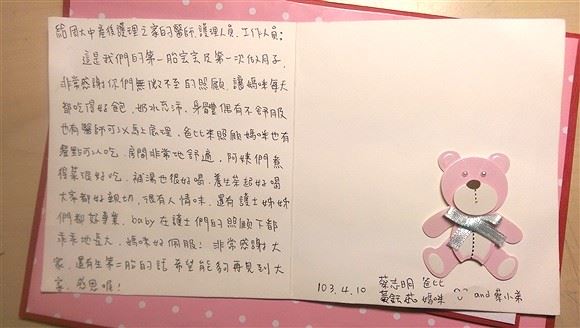 給周大中產後護理之家的醫師、護理人員、工作人員:
這是我們的第一胎宝宝及第一次做月子,
非常感謝你們無微不至的照顧,讓媽咪每天
都吃得好飽,奶水充沛、身體偶有不舒服
也有醫師可以馬上處理,爸比來照顧媽咪也有
餐點可以吃、房間非常地舒適,阿姨們煮
得菜很好吃、補湯也很好喝、養生茶超好喝
大家都好親切,很有人情味、還有護士姊姊
們都好專業,baby在護士們的照顧下都
乖乖地長大、媽咪好佩服!非常感謝大
家,還有生第二胎的話希望能夠再見到大
家 感恩喔!
103.4.10 蔡志明 爸比
黃 媽咪 and 蔡小弟